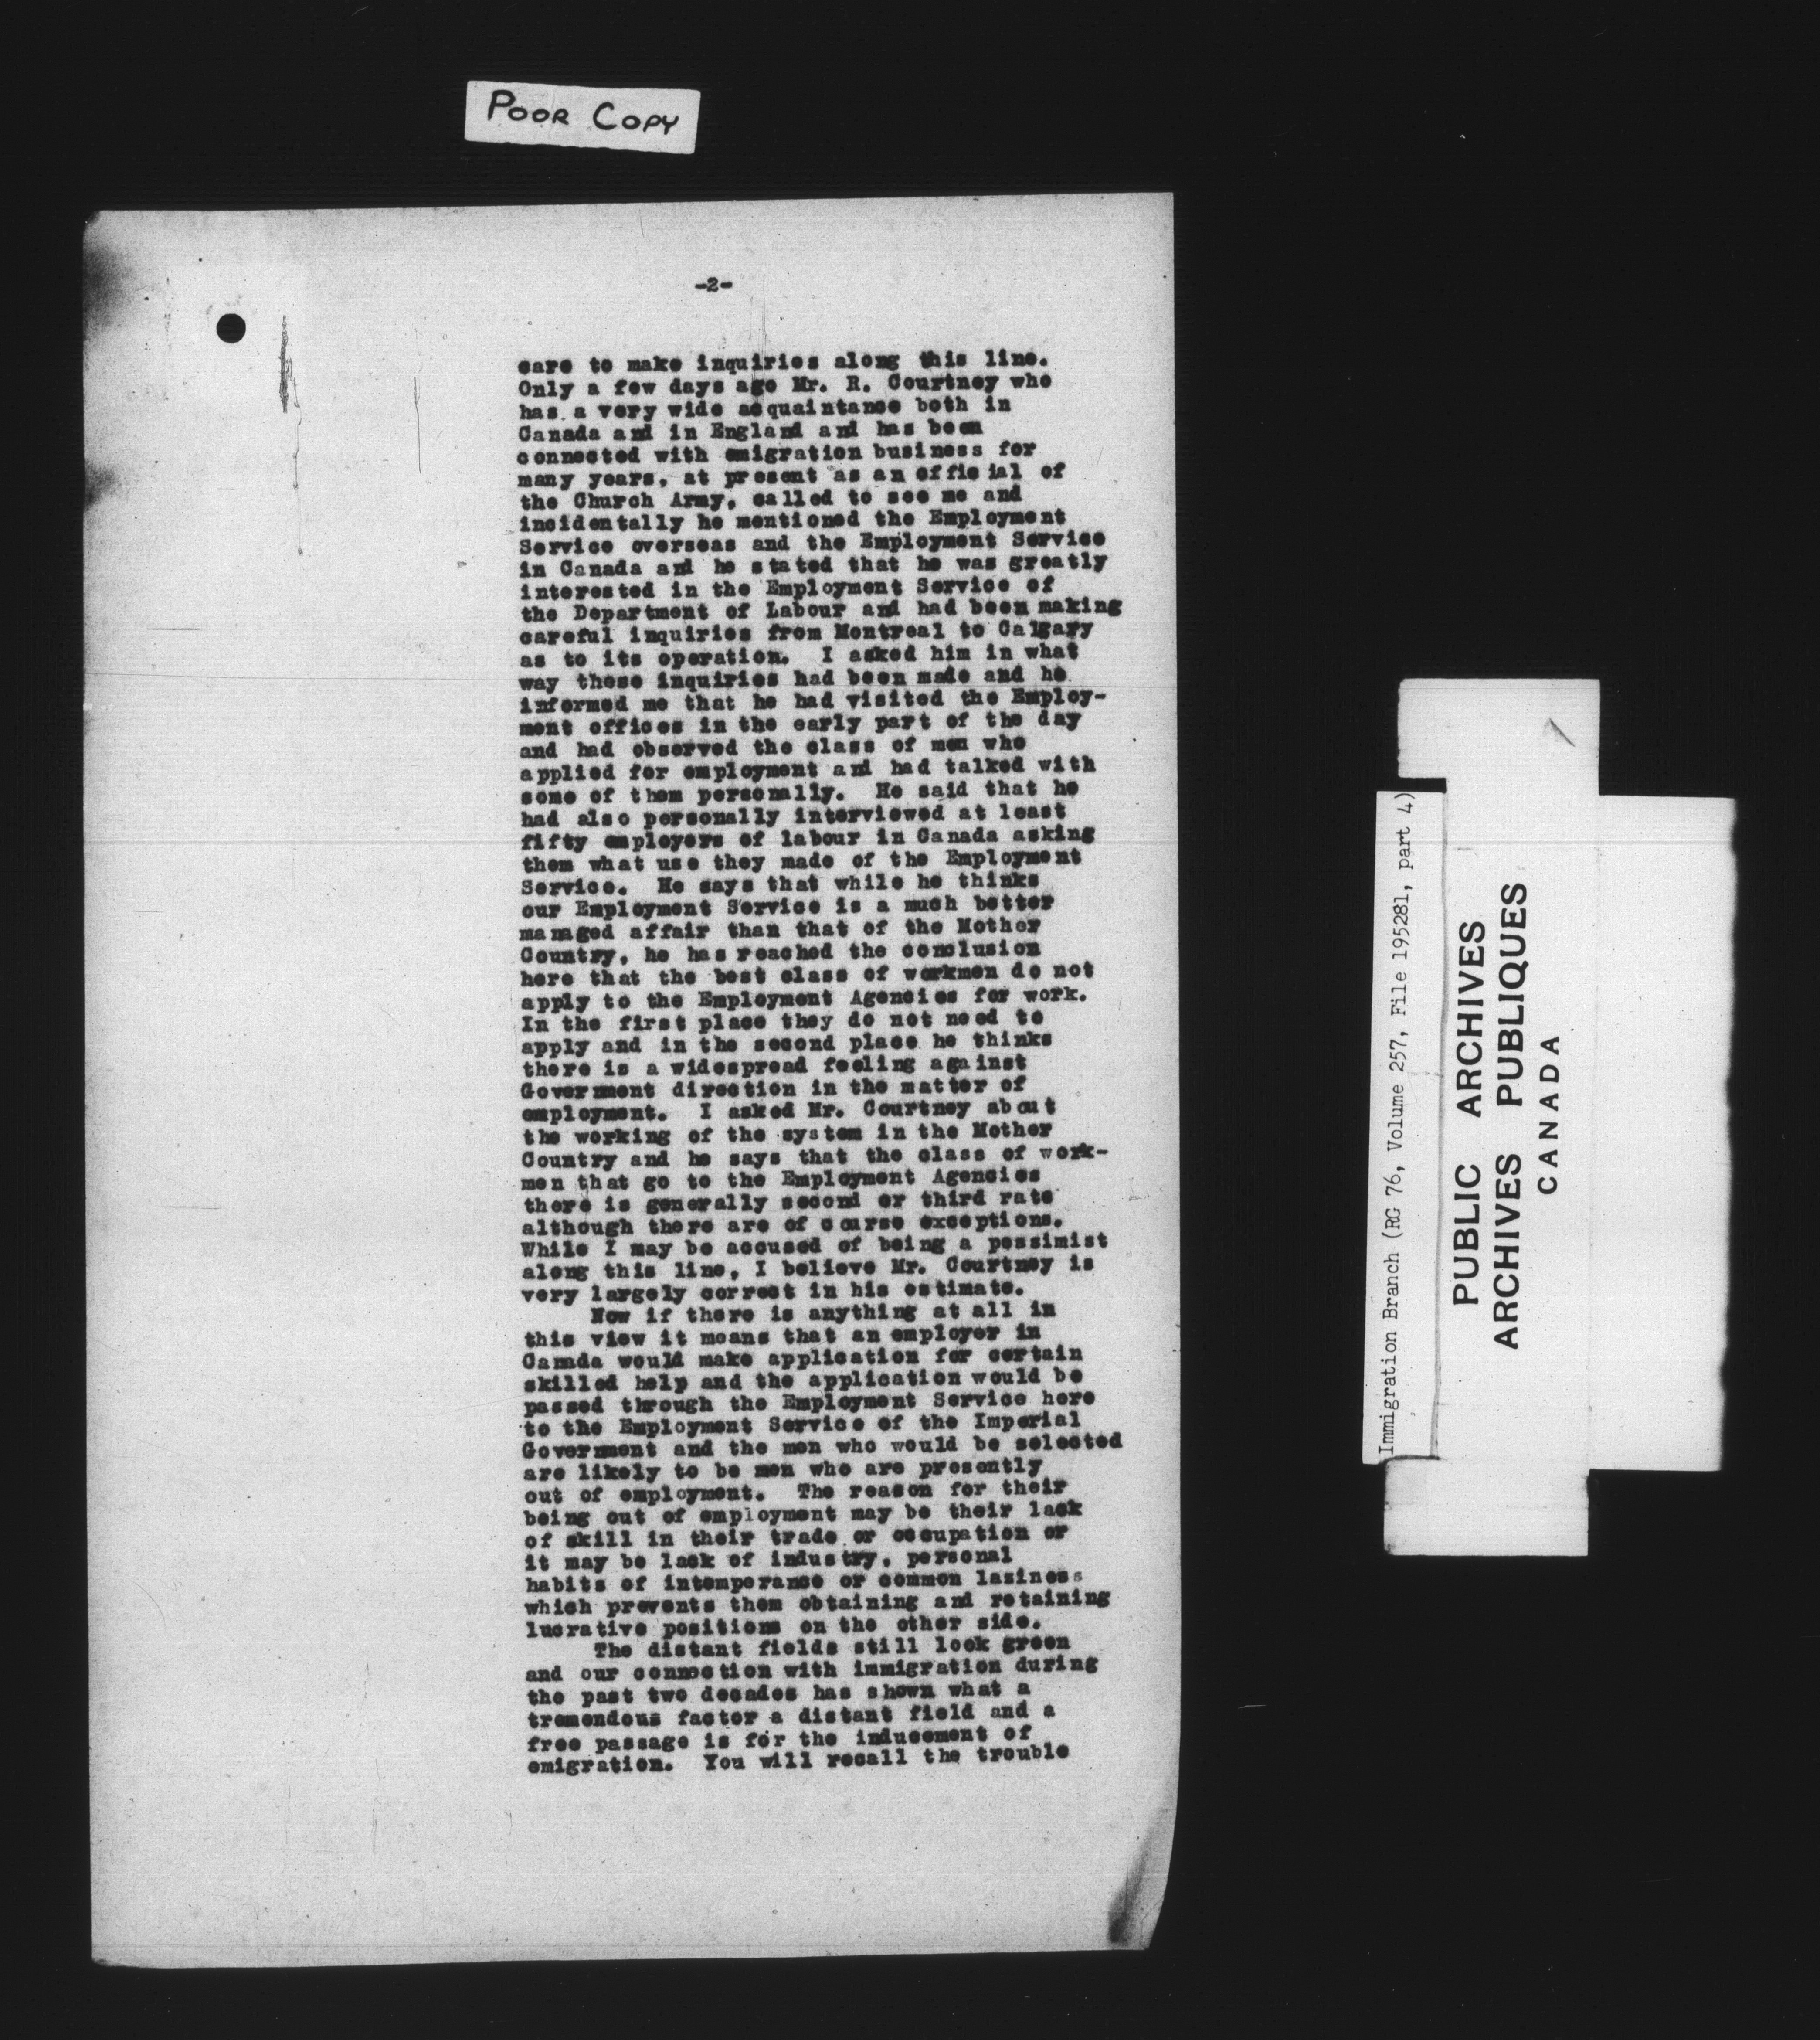 POOR COPY
-2-
care to make inquiries along this line.
Only a few days ago Mr. R. Courtney who
has a very wide acquaintance both in
Canada and in England and has been
connected with emigration business for
many years, at present as an official of
the Church Army, called to see me and
incidentally he mentioned the Employment
Service overseas and the Employment Service
in Canada and he stated that he was greatly
interested in the Employment Service of
the Department of Labour and had been making
careful inquiries from Montreal to Calgary
as to its operation. I asked him in what
way these inquiries had been made and he
informed me that he had visited the Employ-
ment offices in the early part of the day
and had observed the class of men who
applied for employment and had talked with
some of them personally. He said that he
had also personally interviewed at least
fifty employers of labour in Canada asking
them what use they made of the Employment
Service. He says that while he thinks
our Employment Service is a much better
managed affair than that of the Mother
Country, he has reached the conclusion
here that the best class of workmen do not
apply to the Employment Agencies for work.
In the first place they do not need to
apply and in the second place he thinks
there is a widespread feeling against
Government direction in the matter of
employment. I asked Mr. Courtney about
the working of the system in the Mother
Country and he says that the class of work-
men that go to the Employment Agencies
there is generally second or third rate
although there are of course exceptions.
While I may be accused of being a pessimist
along this line, I believe Mr. Courtney is
very largely correct in his estimate.
Now if there is anything at all in
this view it means that an employer in
Canada would make application for certain
skilled help and the application would be
passed through the Employment Service here
to the Employment Service of the Imperial
Government and the men who would be selected
are likely to be men who are presently
out of employment. The reason for their
being out of employment may be their lack
of skill in their trade or occupation or
it may be lack of industry, personal
habits of intemperance or common laziness
which prevents them obtaining and retaining
lucrative positions on the other side.
The distant fields still look green
and our connection with immigration during
the past two decades has shown what a
tremendous factor a distant field and a
free passage is for the inducement of
emigration. You will recall the trouble
Immigration Branch (RG 76, Volume 257, File 195281, part 4)
PUBLIC ARCHIVES
ARCHIVES PUBLIQUES
CANADA